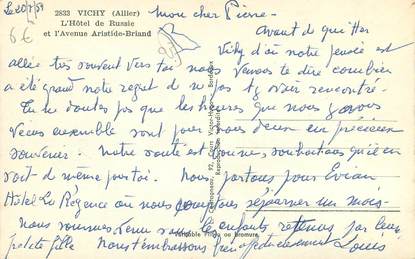 Le 20/7/59
2833 VICHY (Allier)
L'Hôtel de Russie
et l'Avenue Aristide-Briand
6€
Mon cher Pierre
Avant de quitter
Vichy d'où notre pensée est
allée très souvent vers toi, nous venons te dire combien
a été grand notre regret de ne pas t'y voir rencontré.
Tu ne doutes pas que les heures que nous avons
vécues ensemble sont pour nous deux un précieux
souvenir. Notre santé est bonne, souhaitons qu'il en
soit de même pour toi. Nous partons pour Evian
Hôtel La Régence où nous comptons séjourner un mois.
Nous sommes venus sans les enfants retenus par leur
petite fille. Nous t'embrassons bien affectueusement Louis
92, Cours Victor-Hugo, Bordeaux
Reproduction interdite
Véritable Photo au Bromure